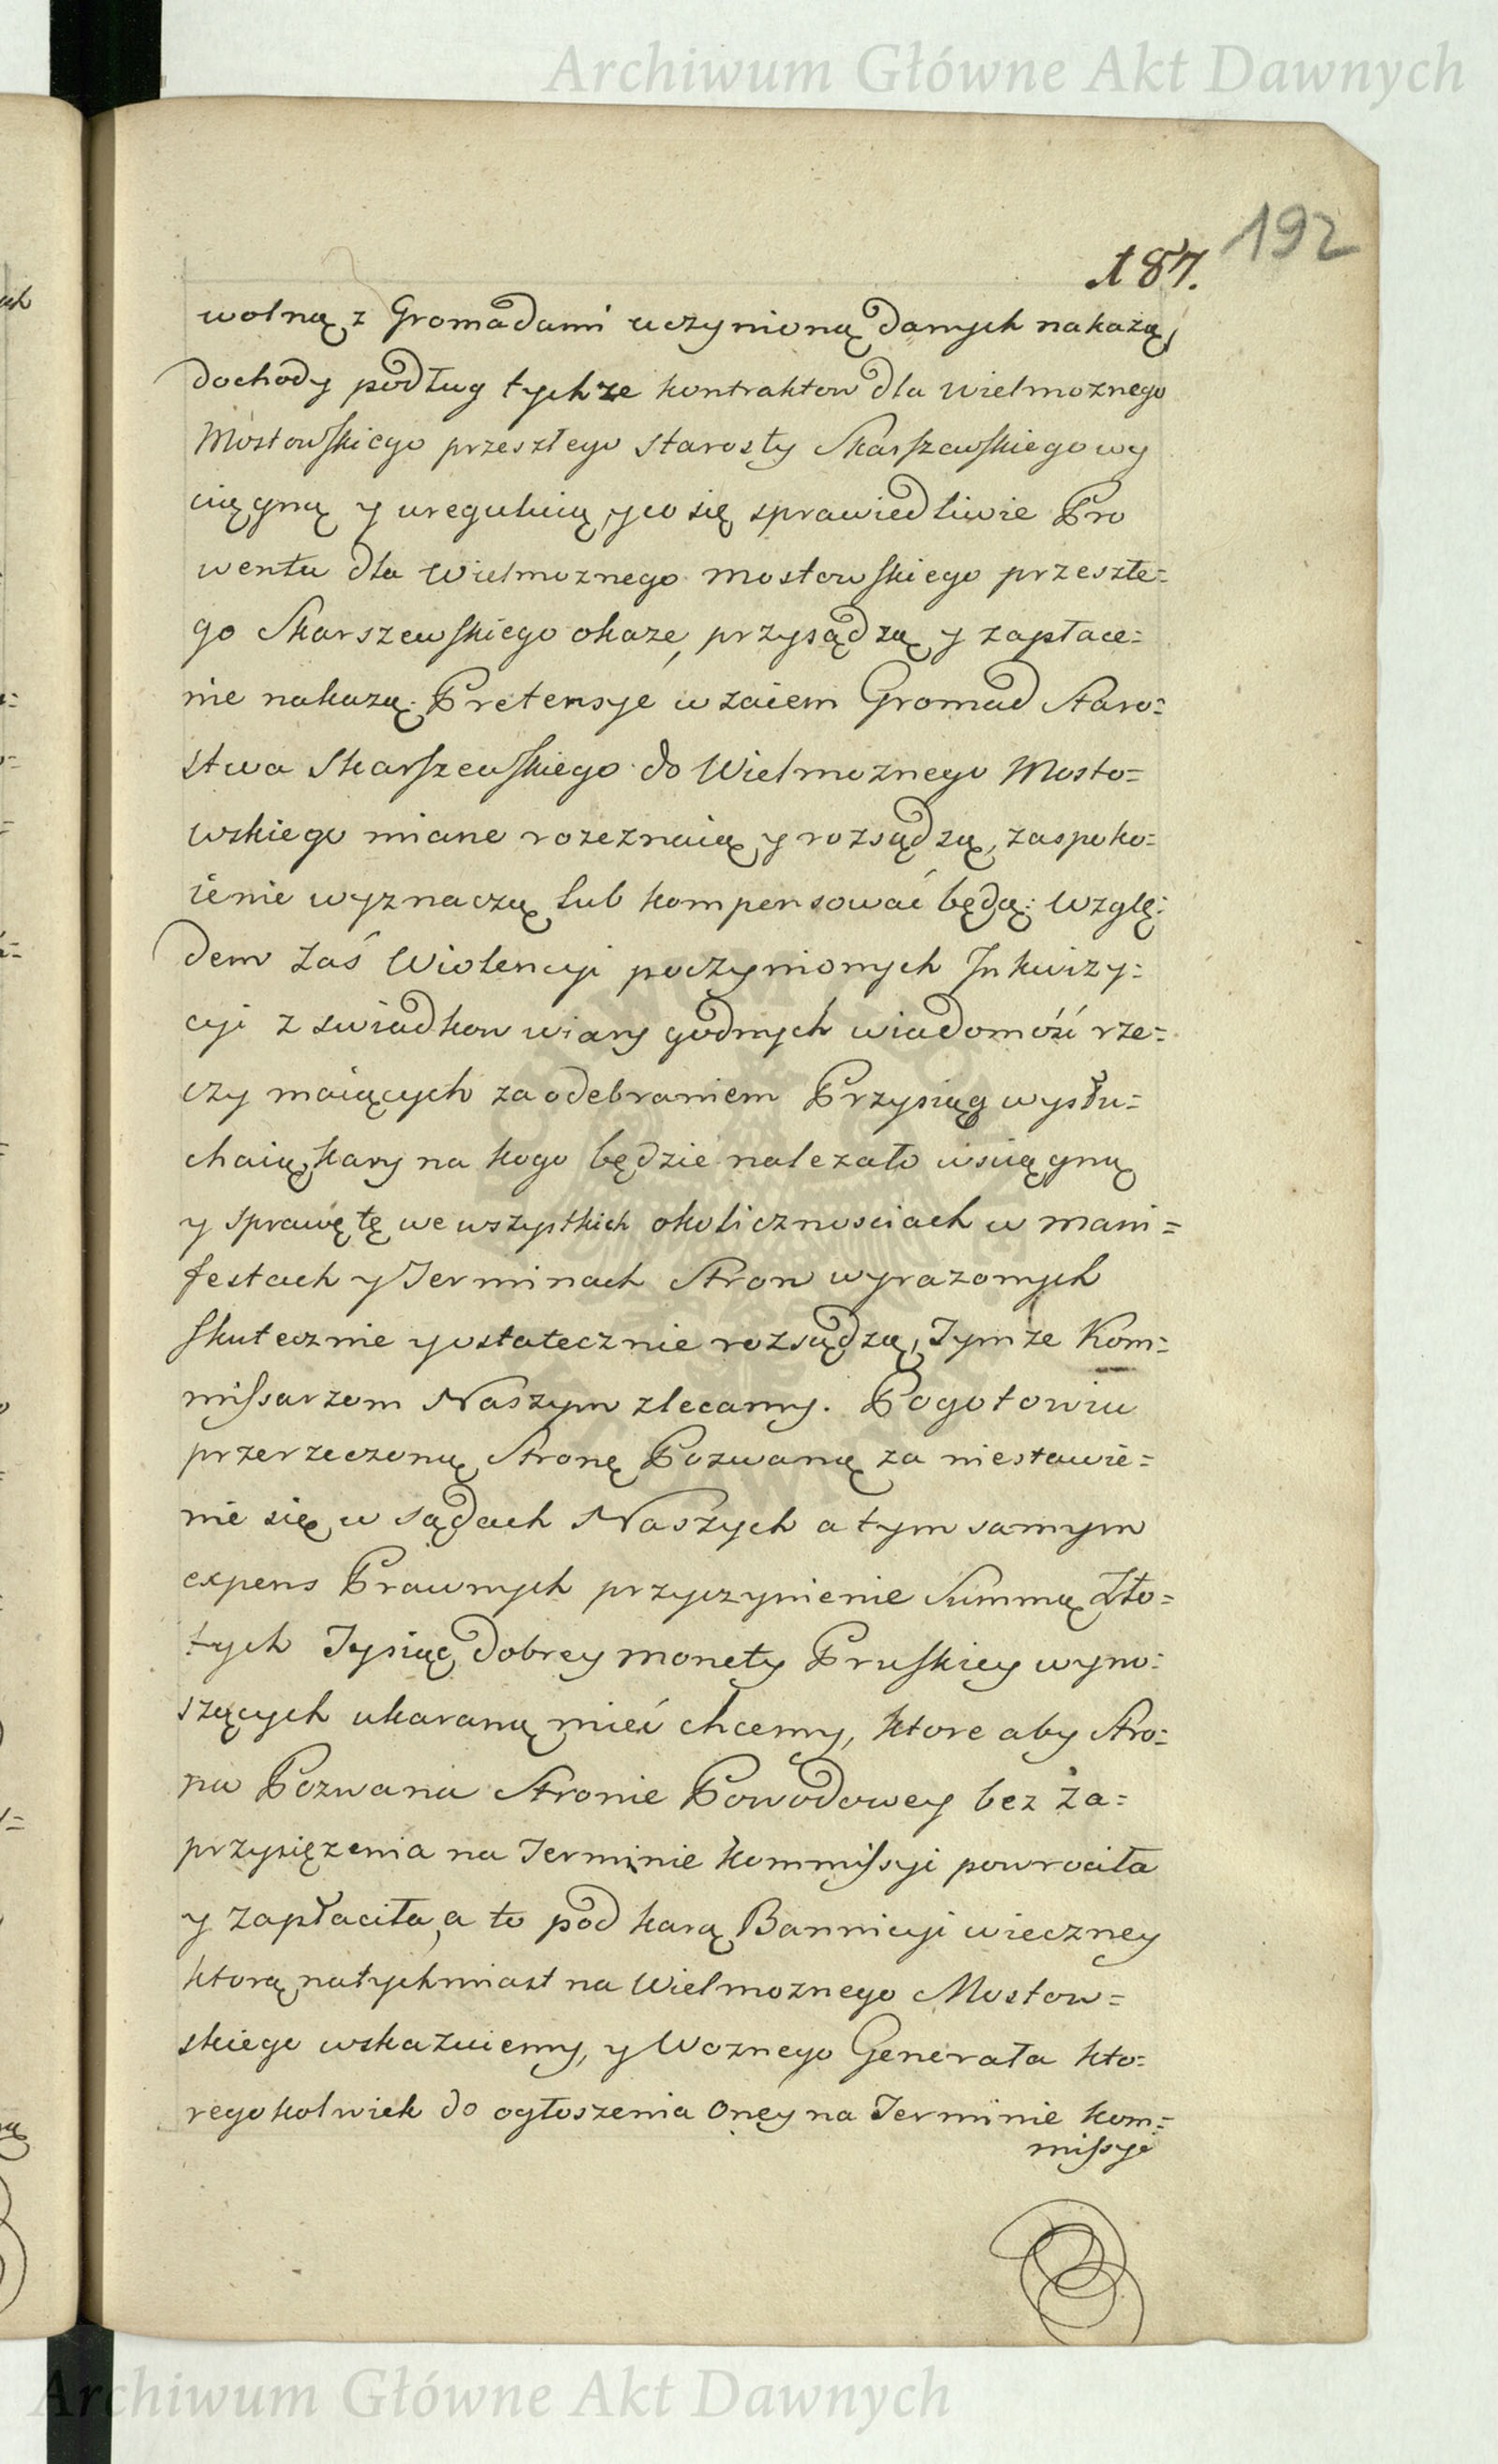 Archiwum Główne Akt Dawnych
192
187.
wolną z Gromadami uczynioną danych nakażą,
dochody podług tychże kontraktow dla Wielmoznego
Mostowskiego przeszłego Starosty Skarszewskiego wy
ciągną y ureguluią, y co się sprawiedliwie Pro
wentu dla Wielmoznego Mostowskiego przeszłe=
go Skarszewskiego okaze, przysądzą y zapłace=
nie nakazą. Pretensye wzaiem Gromad Staro=
stwa Skarszewskiego do Wielmoznego Mosto=
wskiego miane rozeznaią y rozsądzą, zaspoko=
ienie wyznaczą lub kompensować będą: Wzglę=
dem zaś Wiolencyi poczynionych Inkwizy=
cyi z swiadkow wiary godnych wiadomość rze=
czy maiących za odebraniem Przysiąg wysłu=
chaią, kary na kogo będzie nalezało wsciągną
y sprawę tę we wszystkich okolicznosciach w mani=
festach y Terminach Stron wyrazonych
skutecznie y ostatecznie rozsądzą, Tymze Kom=
missarzom Naszym zlecamy. Pogotowiu
przerzeczoną Stronę Pozwaną za niestawie=
nie się w sądach Naszych a tym samym
expens Prawnych przyczynienie Summą Zło=
tych Tysiąc dobrey monety Pruskiey wyno=
szących ukaraną mieć chcemy, ktore aby Stro=
na Pozwana Stronie Powodowey bez za=
przysięzenia na Terminie Kommissyi powrociła
y zapłaciła, a to pod karą Bannicyi wieczney
ktorą natychmiast na Wielmoznego Mostow=
skiego wskazuiemy, y Woznego Generała kto=
regokolwiek do ogłoszenia oney na Terminie Kom=
missyi
Archiwum Główne Akt Dawnych